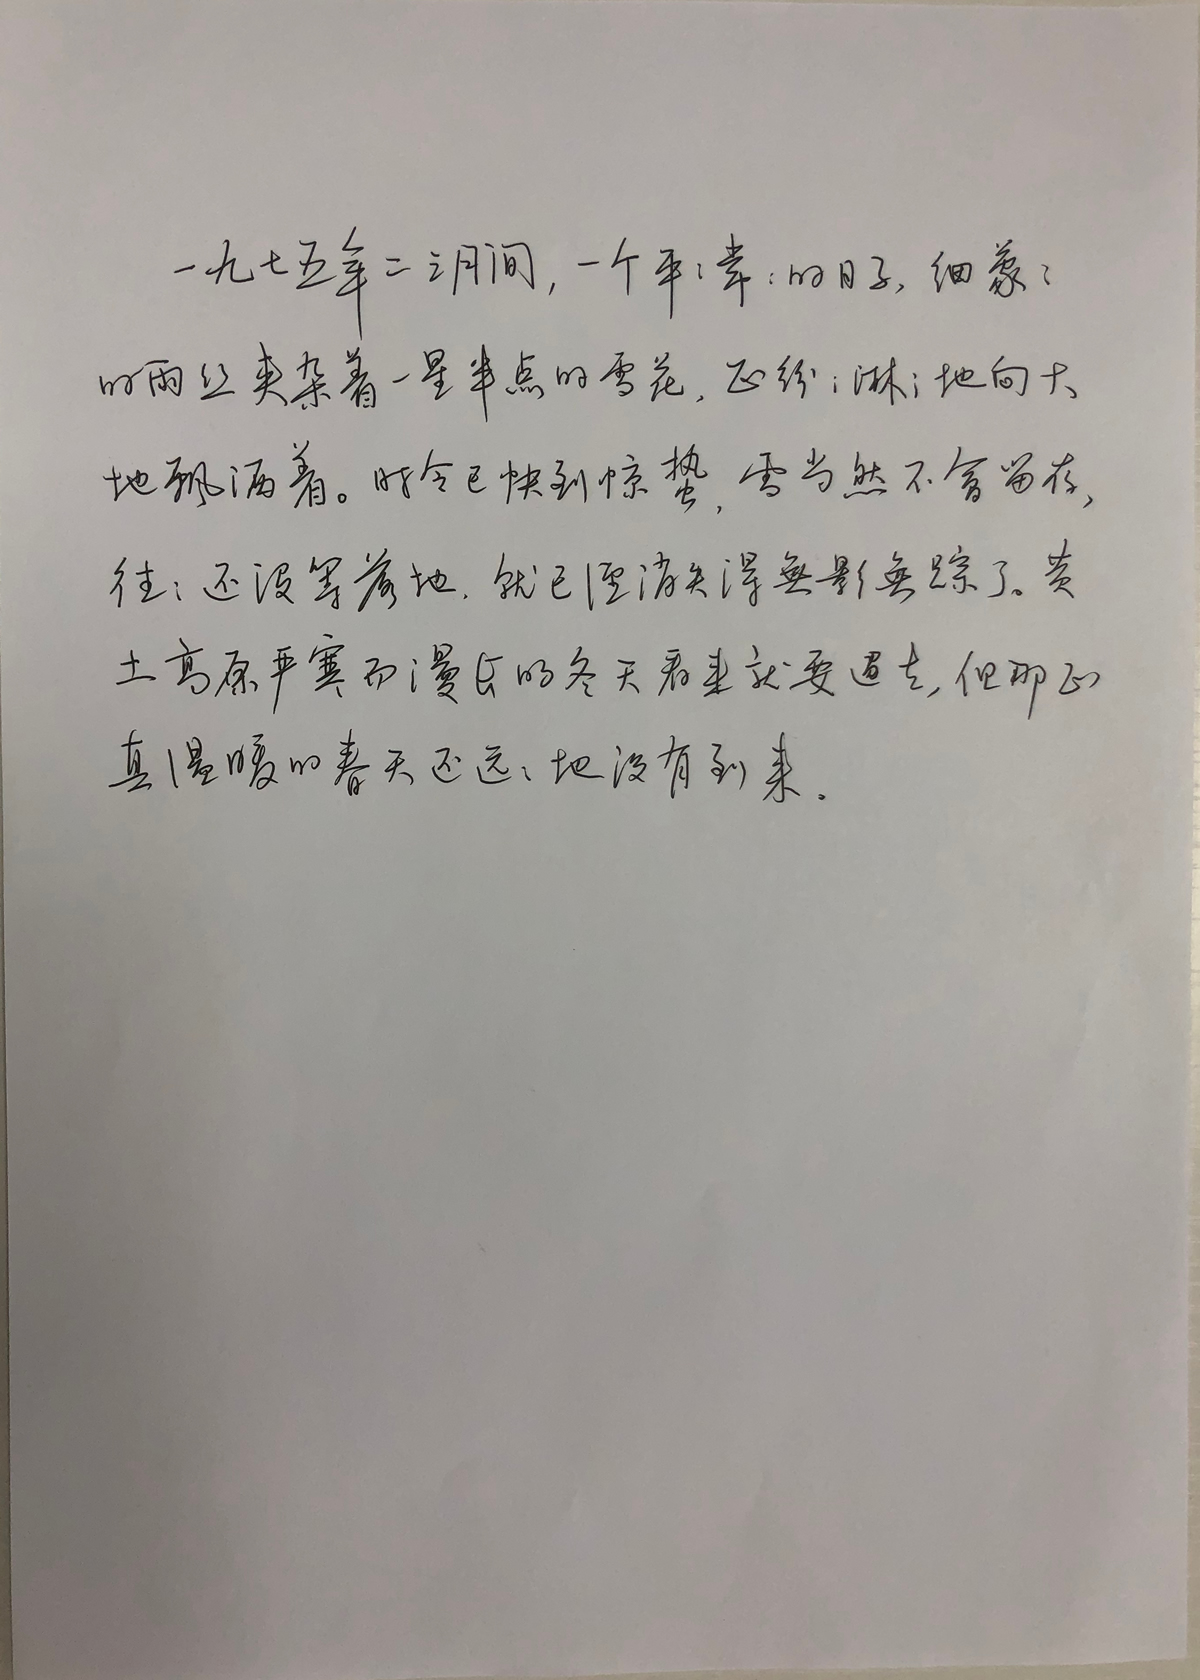 一九七五年二三月间，一个平：常：的日子，细蒙：
的雨丝夹杂着一星半点的雪花，正纷：淋：地向大
地飘洒着。时令已快到惊蛰，雪当然不会留存，
往：还没等落地，就已经消失得無影無踪了。黄
土高原严寒而漫长的冬天看来就要过去，但那正
真温暖的春天还远：地没有到来。